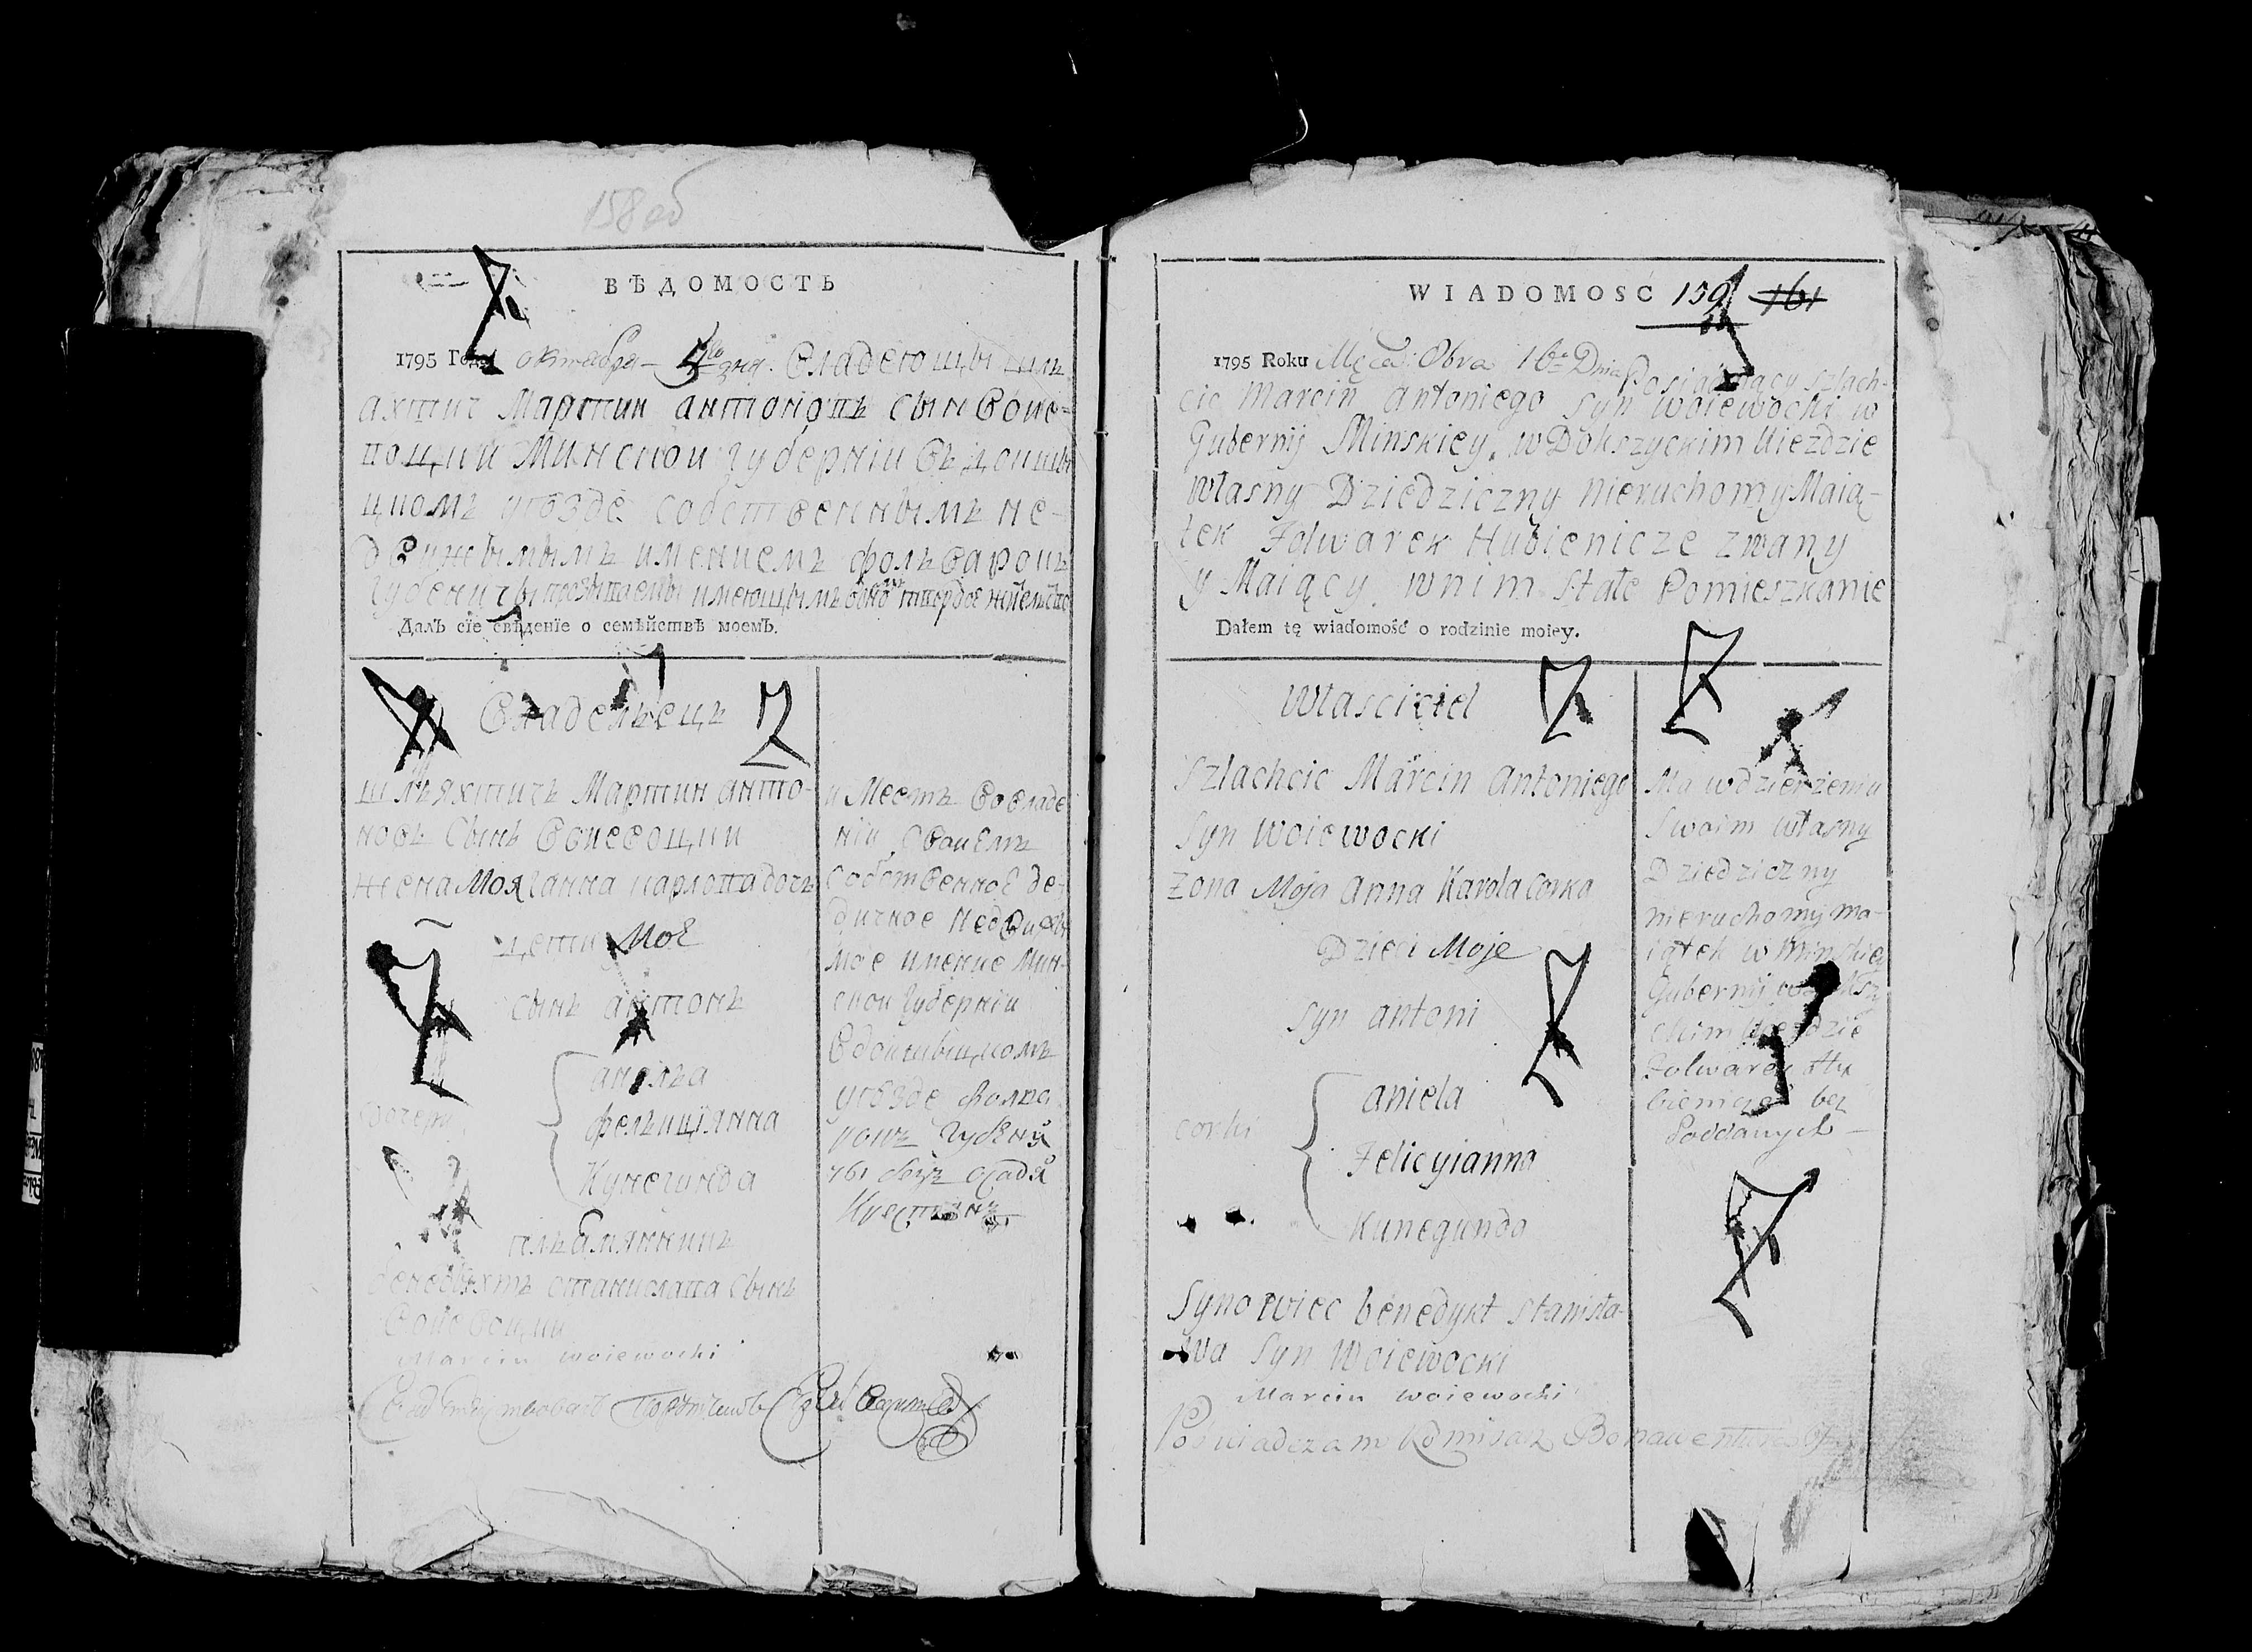 158 об
ВѢДОМОСТЬ
1795 Года октября дня. Владеющы шля
ахтич Мартин антоновъ сын Воие-
воцкии Минскои губерніи Въ докшы
цкомъ уѣзде собственнымъ не-
движымымъ имениемъ фольваркомъ
Губеничы имеющымъ жительство
Далъ сїе свѣденїе о семѣйствѣ моемЪ.
Владелецъ
шляхтичъ Мартин анто-
новъ Сынъ Воиевоцкии
жена Моя ганна карлова дочь
дети Мое
сынъ антонъ
дочери
анеля
фелицияанна
Кунегунда
племянникъ
бенедыхтъ станислава Сынъ
Воиевоцкии
Marcin woiewocki
имеетъ Во владе
нiи Своиемъ
Собственное де-
дичное недвижы
мое имение Мин-
скои губернiи
Вдокшыцкомъ
уѣзде
безъ
WIADOMOSC 159 161
1795 Roku Dnia Posiadaiący szlach-
cic Marcin Antoniego Syn woiewocki w
Gubernij Minskiey, w Dokszyckim Uiezdzie
własny Dziedziczny nieruchomy Maią-
tek Folwarek Hubienicze zwany
y Maiący w nim stałe Pomieszkanie
Dałem tę wiadomość o rodzinie moiey.
Własciciel
Szlachcic Marcin Antoniego
Syn Woiewocki
Zona Moja Anna Karola Corka
Dzieci Moje
Syn antoni
corki
aniela
Felicyianna
Kunegunda
Synowiec benedykt Stanisła-
wa Syn Woiewocki
Marcin woiewocki
Poswiadczam Komisarz Bonawentura
Ma wdzierżeniu
Swoim własny
Dziedziczny
nieruchomy ma-
iątek w Minskiey
Gubernij
ckim Uiezdzie
Folwarek Hu
bienicze bez
Poddanych